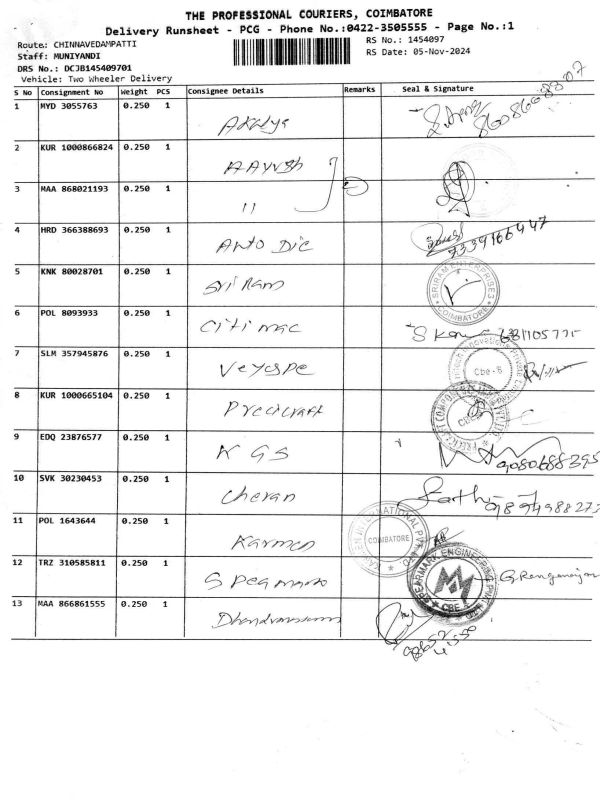 THE PROFESSIONAL COURIERS, COIMBATORE
Delivery Runsheet - PCG - Phone No.:0422-3505555 - Page No.:1
Route: CHINNAVEDAMPATTI
RS No.: 1454097
Staff: MUNIYANDI
RS Date: 05-Nov-2024
DRS No.: DCJB145409701
Vehicle: Two Wheeler Delivery
S No Consignment No Weight PCS Consignee Details Remarks Seal & Signature
1 MYD 3055763 0.250 1 Akalya 8608668807
2 KUR 1000866824 0.250 1 AAyush
3 MAA 868021193 0.250 1 11
4 HRD 366388693 0.250 1 Auto Dic 7339166447
5 KNK 80028701 0.250 1 Sri Ram SRIRAM ENTERPRISES COIMBATORE
6 POL 8093933 0.250 1 Citi mac
7 SLM 357945876 0.250 1 Cbe-6
8 KUR 1000665104 0.250 1 Precicraft
9 EDQ 23876577 0.250 1 K G S 9080688395
10 SVK 30230453 0.250 1 Cheran
11 POL 1643644 0.250 1 Karmen COIMBATORE
12 TRZ 310585811 0.250 1 CBE
13 MAA 866861555 0.250 1